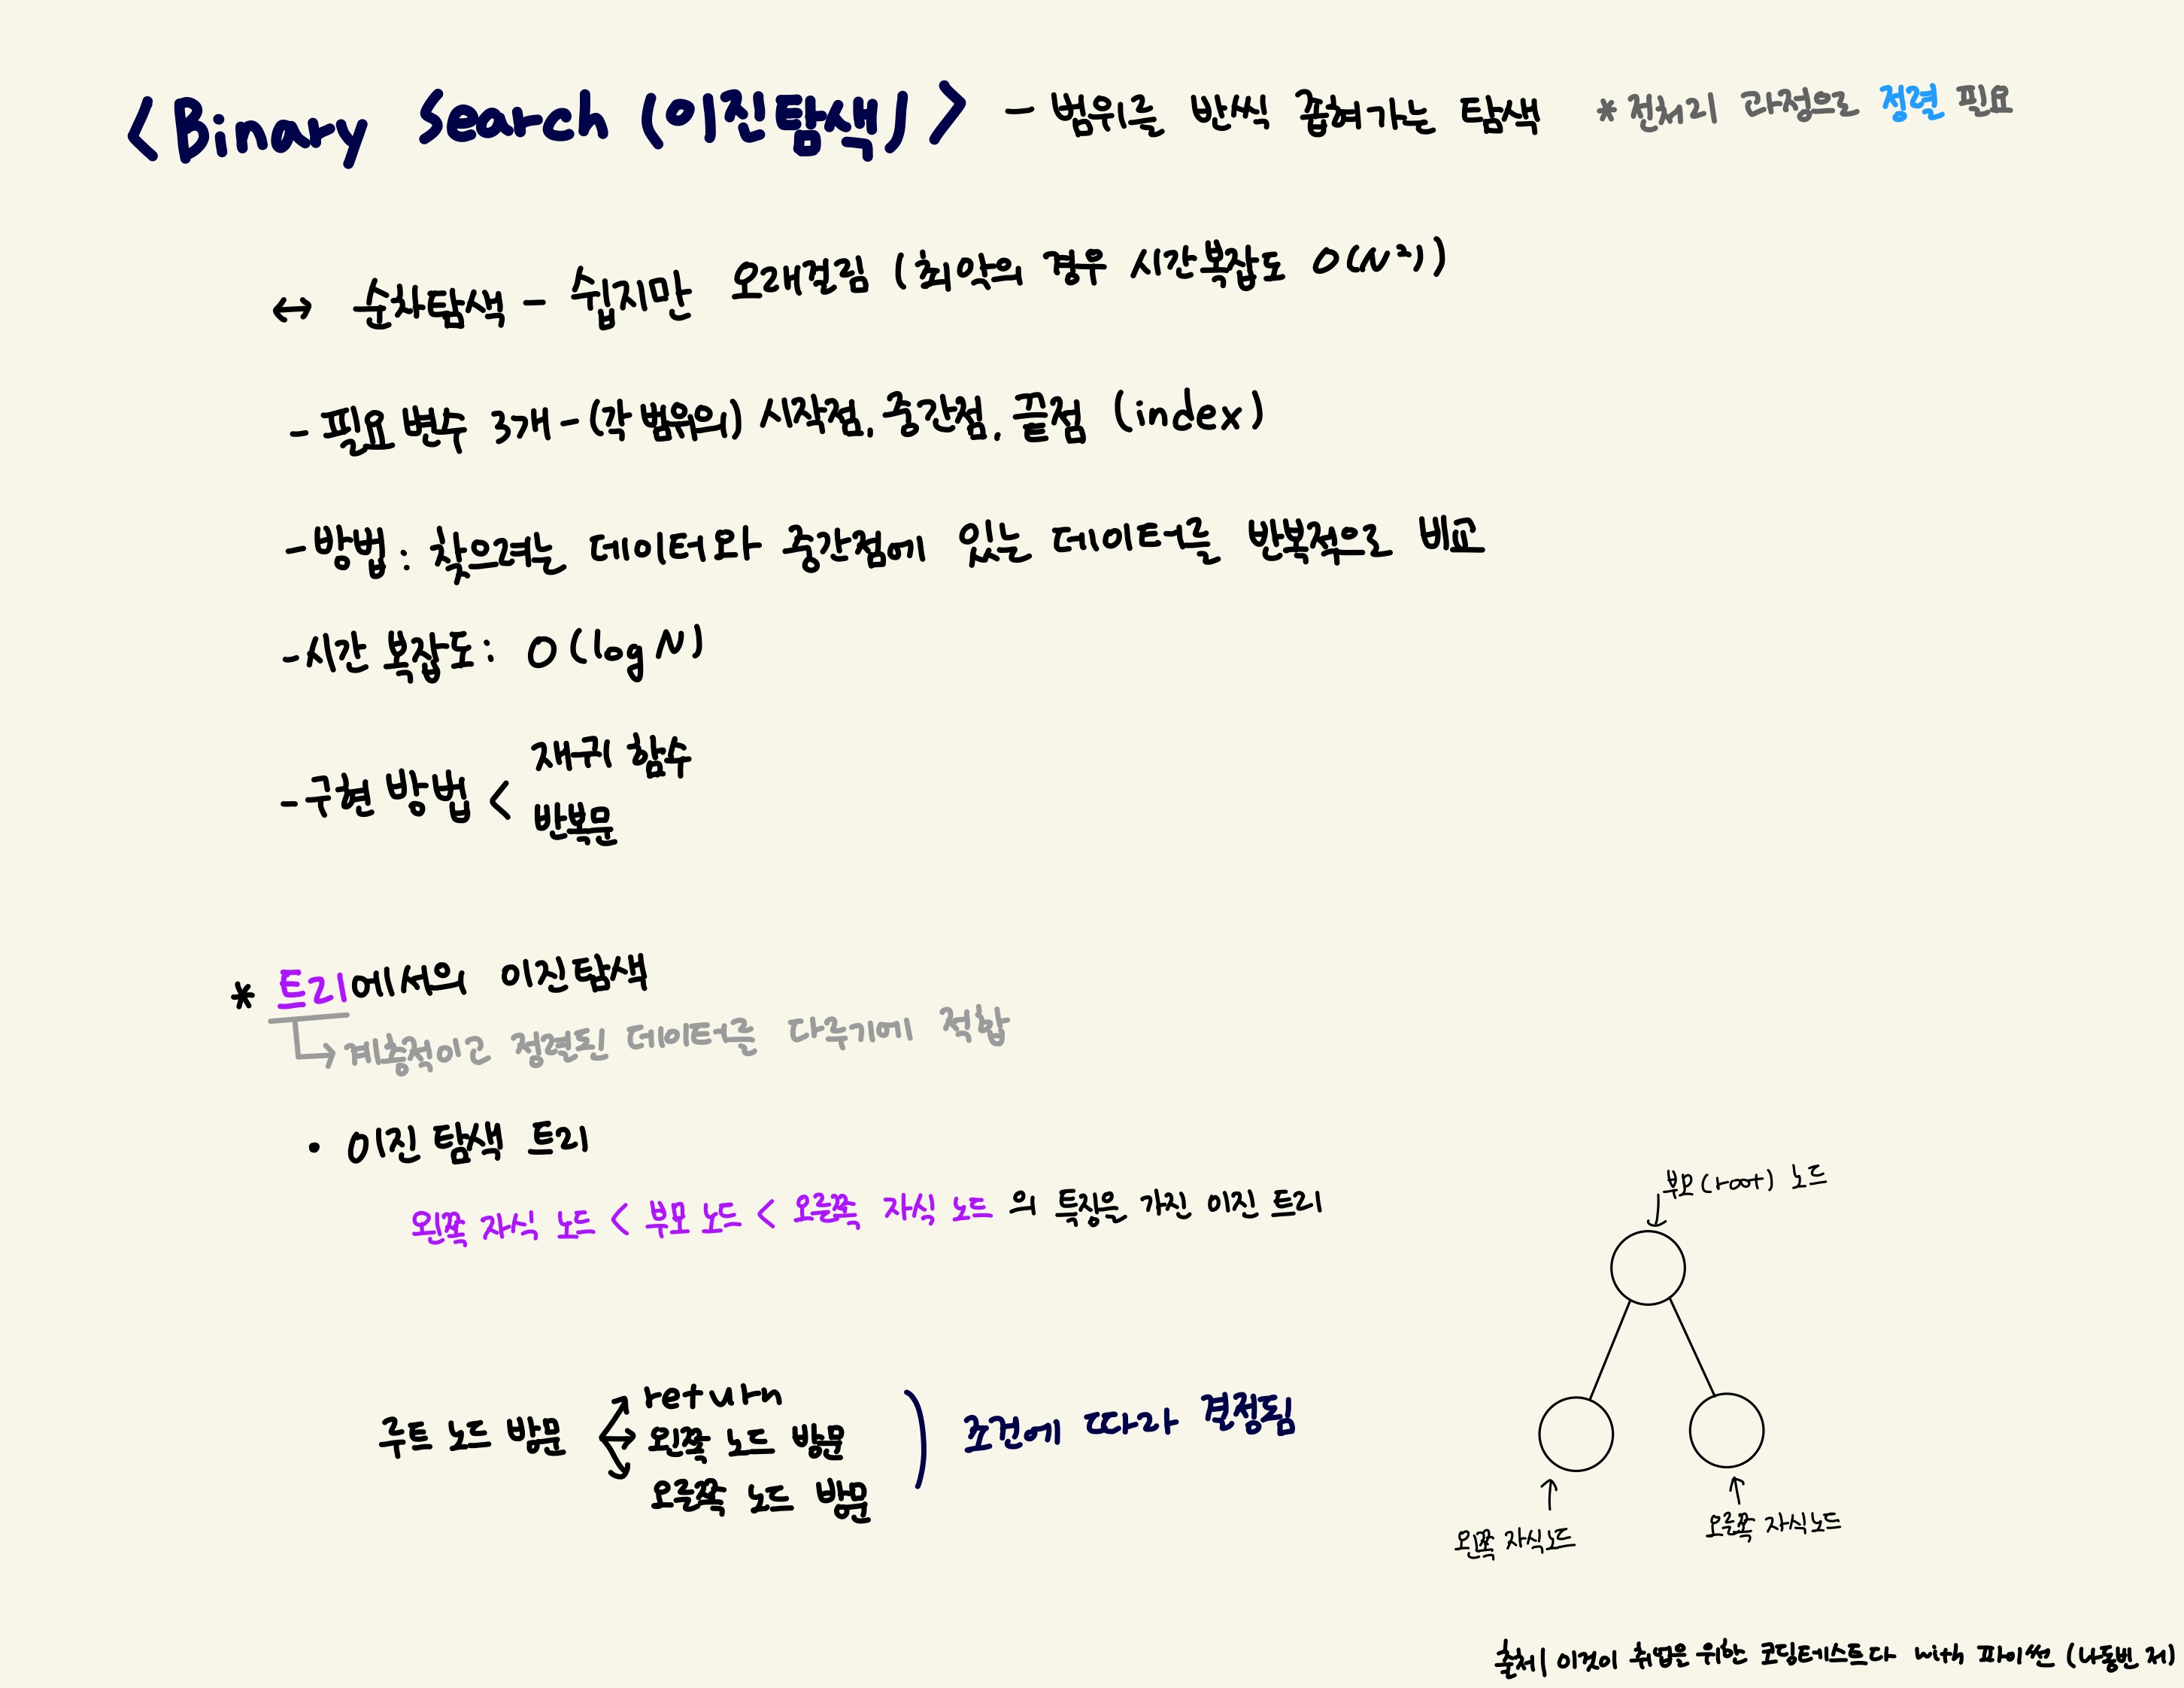 <Binary Search (이진탐색)> - 범위를 반씩 좁혀가는 탐색 * 전처리 과정으로 정렬 필요
↔ 순차탐색 - 쉽지만 오래걸림 (최악의 경우 시간복잡도 O(N²))
- 필요 변수 3개 - (각 범위의) 시작점, 중간점, 끝점 (index)
- 방법 : 찾으려는 데이터와 중간점에 있는 데이터를 반복적으로 비교
- 시간 복잡도 : O(log N)
- 구현 방법 < 재귀 함수
반복문
* 트리에서의 이진탐색
↳ 계층적이고 정렬된 데이터를 다루기에 적합
• 이진 탐색 트리
왼쪽 자식 노드 < 부모 노드 < 오른쪽 자식 노드 의 특징을 가진 이진 트리
부모 (root) 노드
루트 노드 방문
return
왼쪽 노드 방문
오른쪽 노드 방문
조건에 따라 결정됨
왼쪽 자식노드
오른쪽 자식노드
출처| 이것이 취업을 위한 코딩테스트다 with 파이썬 (나동빈 저)